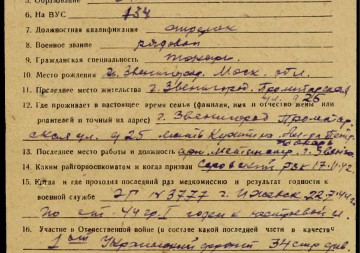 5. Образование
6. На ВУС № 134
7. Должностная квалификация стрелок
8. Военное звание рядовой
9. Гражданская специальность токарь
10. Место рождения г. Звенигород, Моск. обл.
11. Последнее место жительства г. Звенигород. Пролетарская
ул. д 25
12. Где проживает в настоящее время семья (фамилия, имя и отчество жены или
родителей и точный их адрес) г. Звенигород Пролетар-
ская ул. д 25 мать
13. Последнее место работы и должность
14. Каким райгорвоенкоматом и когда призван РВК 17.11.42
15. Когда и где проходил последний раз медкомиссию и результат годности к
военной службе ЭГ № 3777 г. Ижевск 22.7.44 г.
по ст. 44 гр. I годен к строевой сл.
16. Участие в Отечественной войне (в составе какой последней части и в качестве
1 ый Украинский фронт 34